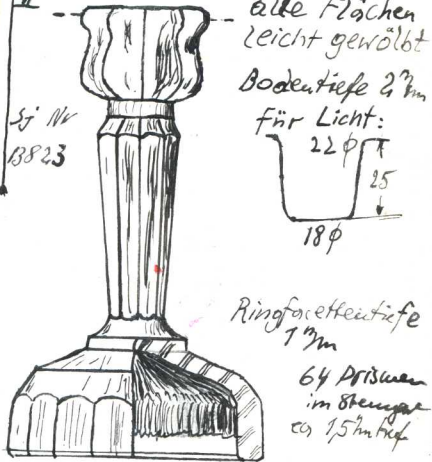 alle Flächen
leicht gewölbt
Bodentiefe 2 m/m
für Licht:
22 ϕ
25
18 ϕ
Sj Nr
13823
Ringfacettentiefe
1 m/m
64 Prismen
im
ca 1,5 m/m tief